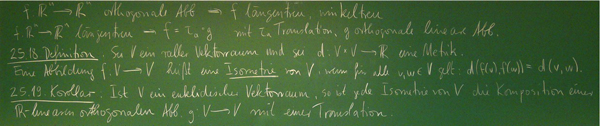 f: ℝⁿ → ℝⁿ orthogonale Abb ⇒ f längentreu, winkeltreu
f: ℝⁿ → ℝⁿ längentreu ⇒ f = τₐ ∘ g mit τₐ Translation, g orthogonale lineare Abb.
25.18 Definition. Sei V ein reeller Vektorraum und sei d: V × V → ℝ eine Metrik.
Eine Abbildung f: V → V heißt eine Isometrie von V, wenn für alle v, w ∈ V gilt: d(f(v), f(w)) = d(v, w).
25.19. Korollar. Ist V ein euklidischer Vektorraum, so ist jede Isometrie von V die Komposition einer
ℝ-linearen orthogonalen Abb. g: V → V mit einer Translation.